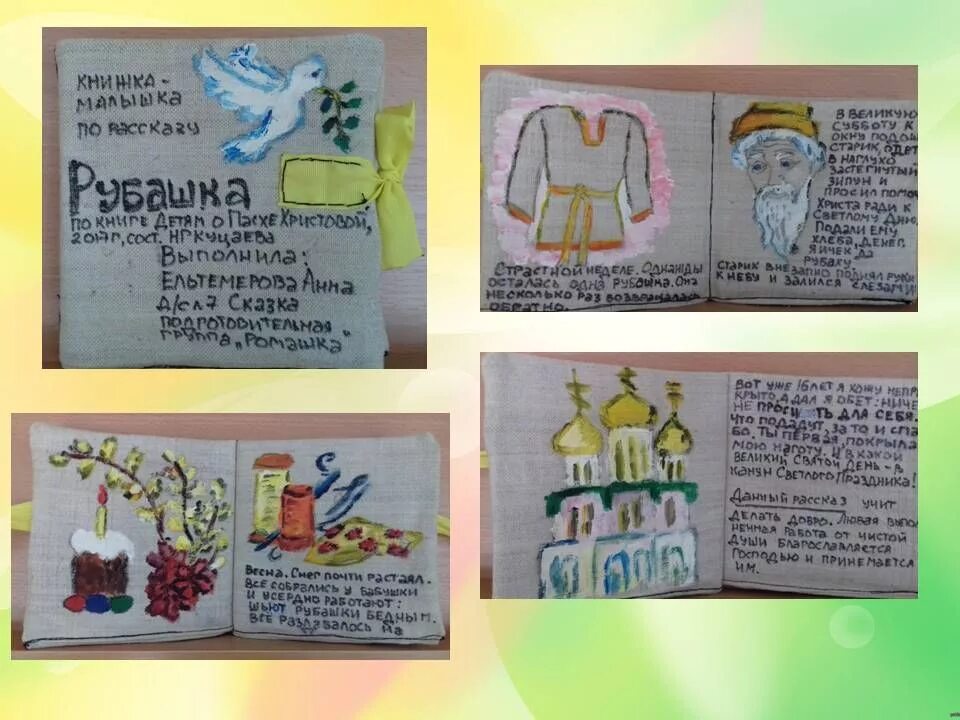 КНИЖКА-
МАЛЫШКА
ПО РАССКАЗУ
РУБАШКА
ПО КНИГЕ ДЕТЯМ О ПАСХЕ ХРИСТОВОЙ,
2017Г, СОСТ. Н Г КУЦАЕВА
ВЫПОЛНИЛА:
ЕЛЬТЕМЕРОВА АННА
Д/С Л 7 СКАЗКА
ПОДГОТОВИТЕЛЬНАЯ
ГРУППА „РОМАШКА"
ВЕСНА. СНЕГ ПОЧТИ РАСТАЯЛ.
ВСЕ СОБРАЛИСЬ У БАБУШКИ
И УСЕРДНО РАБОТАЮТ:
ШЬЮТ РУБАШКИ БЕДНЫМ.
ВСЕ РАЗДАВАЛОСЬ НА
СТРАСТНОЙ НЕДЕЛЕ. ОДНАЖДЫ
ОСТАЛАСЬ ОДНА РУБАШКА. ОНА
НЕСКОЛЬКО РАЗ ВОЗВРАЩАЛАСЬ
ОБРАТНО.
В ВЕЛИКУЮ
СУББОТУ К
ОКНУ ПОДОШ
СТАРИК, ОДЕТ
В НАГЛУХО
ЗАСТЕГНУТЫЙ
ЗИПУН И
ПРОСИЛ ПОМОЧ
ХРИСТА РАДИ К
СВЕТЛОМУ ДНЮ.
ПОДАЛИ ЕМУ
ХЛЕБА, ДЕНЕГ,
ЯИЧЕК, ДА
РУБАХУ.
СТАРИК ВНЕЗАПНО ПОДНЯЛ РУКИ
К НЕБУ И ЗАЛИЛСЯ СЛЕЗАМИ
ВОТ УЖЕ 16 ЛЕТ Я ХОЖУ НЕПР
КРЫТО, А ДАЛ Я ОБЕТ: НИЧЕ
НЕ ПРОСИТЬ ДЛЯ СЕБЯ.
ЧТО ПОДАДУТ, ЗА ТО И СПА
БО. ТЫ ПЕРВАЯ, ПОКРЫЛА
МОЮ НАГОТУ. И В КАКОЙ
ВЕЛИКИЙ СВЯТОЙ ДЕНЬ - В
КАНУН СВЕТЛОГО ПРАЗДНИКА!
ДАННЫЙ РАССКАЗ УЧИТ
ДЕЛАТЬ ДОБРО. ЛЮБАЯ ВЫПО
НЕННАЯ РАБОТА ОТ ЧИСТОЙ
ДУШИ БЛАГОСЛАВЛЯЕТСЯ
ГОСПОДЬЮ И ПРИНЕМАЕТСЯ
ИМ.